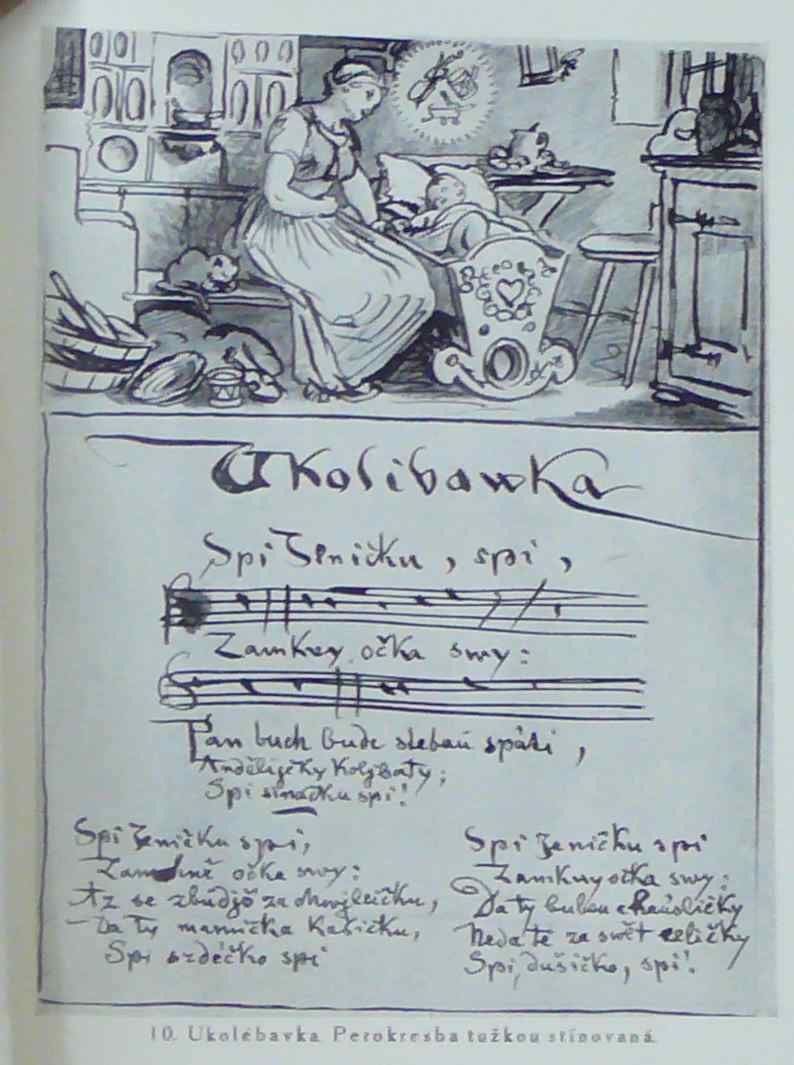 Ukolibawka
Spi Jeničku, spi,
Zamkny očka swy:
Pan buch bude stebau spáti,
Andělíčky kolíbaty;
Spi sinačku spi!
Spi Jeničku spi,
očka swy:
Az se zbudjš za chwjleičku,
Da ty mamička kašičku,
Spi srdéčko spi
Spi Jeničku spi
Zamkny očka swy:
Da ty buben a housličky
Neda te za swět celičky
Spi, dušičko, spi!
10. Ukolébavka. Perokresba tužkou stínovaná.